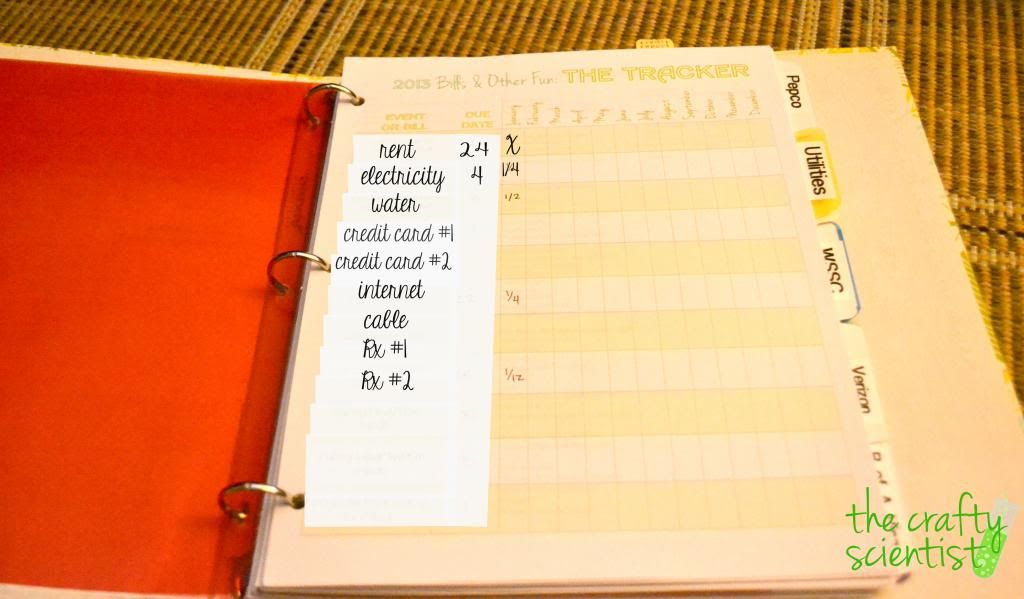 2013 Bills & Other Fun: THE TRACKER
EVENT OR BILL
DUE DATE
January February March April May June July August September October November December
rent 24 X
electricity 4 1/4
water 1/2
credit card #1
credit card #2
internet 1/4
cable
Rx #1
Rx #2 1/12
Pepco
Utilities
WSSC
Verizon
the crafty
scientist